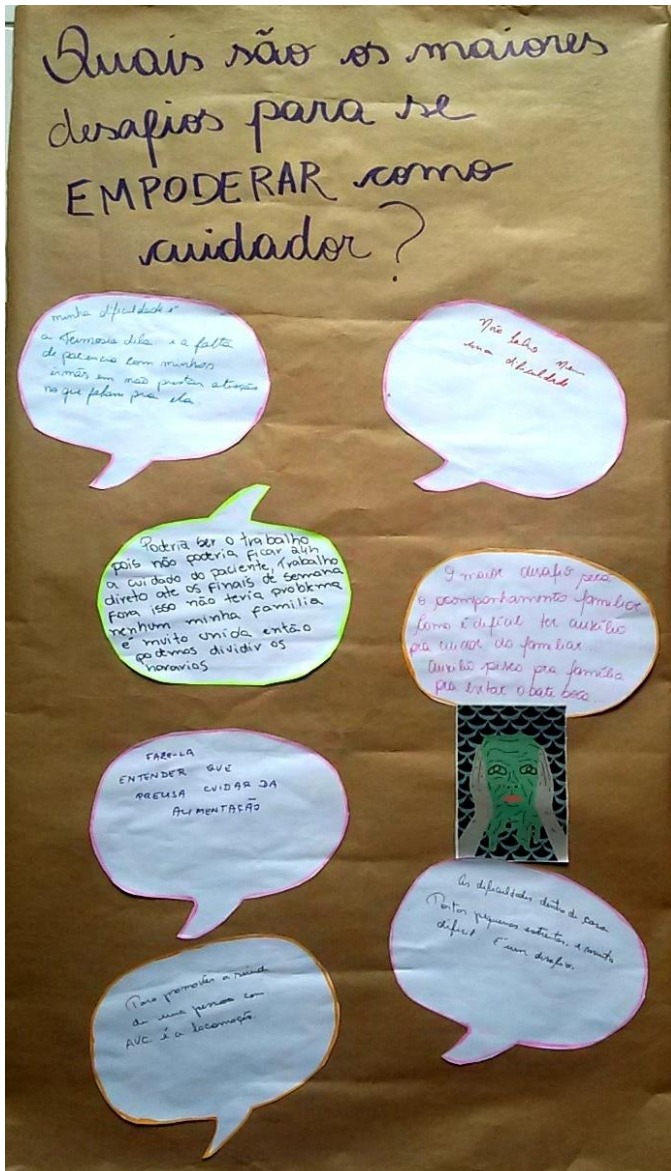 Quais são os maiores
desafios para se
EMPODERAR como
cuidador?
minha dificuldade é
a Teimosia dela e a falta
de paciencia com minhas
irmãs em não prestar atenção
no que falam pra ela
Não tenho
uma dificuldade
Poderia ser o trabalho
pois não poderia ficar 24h
a cuidado do paciente, Trabalho
direto ate os finais de semana
Fora isso não teria problema
nenhum minha familia
é muito unida então
podemos dividir os
horarios
O maior desafio
o acompanhamento familiar
Como é dificil ter auxílio
pra cuidar do familiar...
auxílio pra família
pra evitar o bate boca...
FAZE-LA
ENTENDER QUE
PRECISA CUIDAR DA
ALIMENTAÇÃO
As dificuldades dentro de casa
Portas pequenas estreitas, e muito
dificil É um desafio.
Para promover a saúde
de uma pessoa com
AVC é a locomoção.